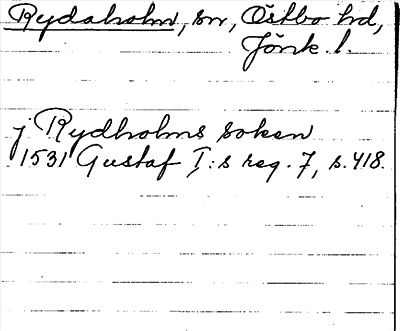 Rydaholm, sn, Östbo hd,
Jönk. l.
j Rydholms soken
1531 Gustaf I:s reg. 7, s. 418.